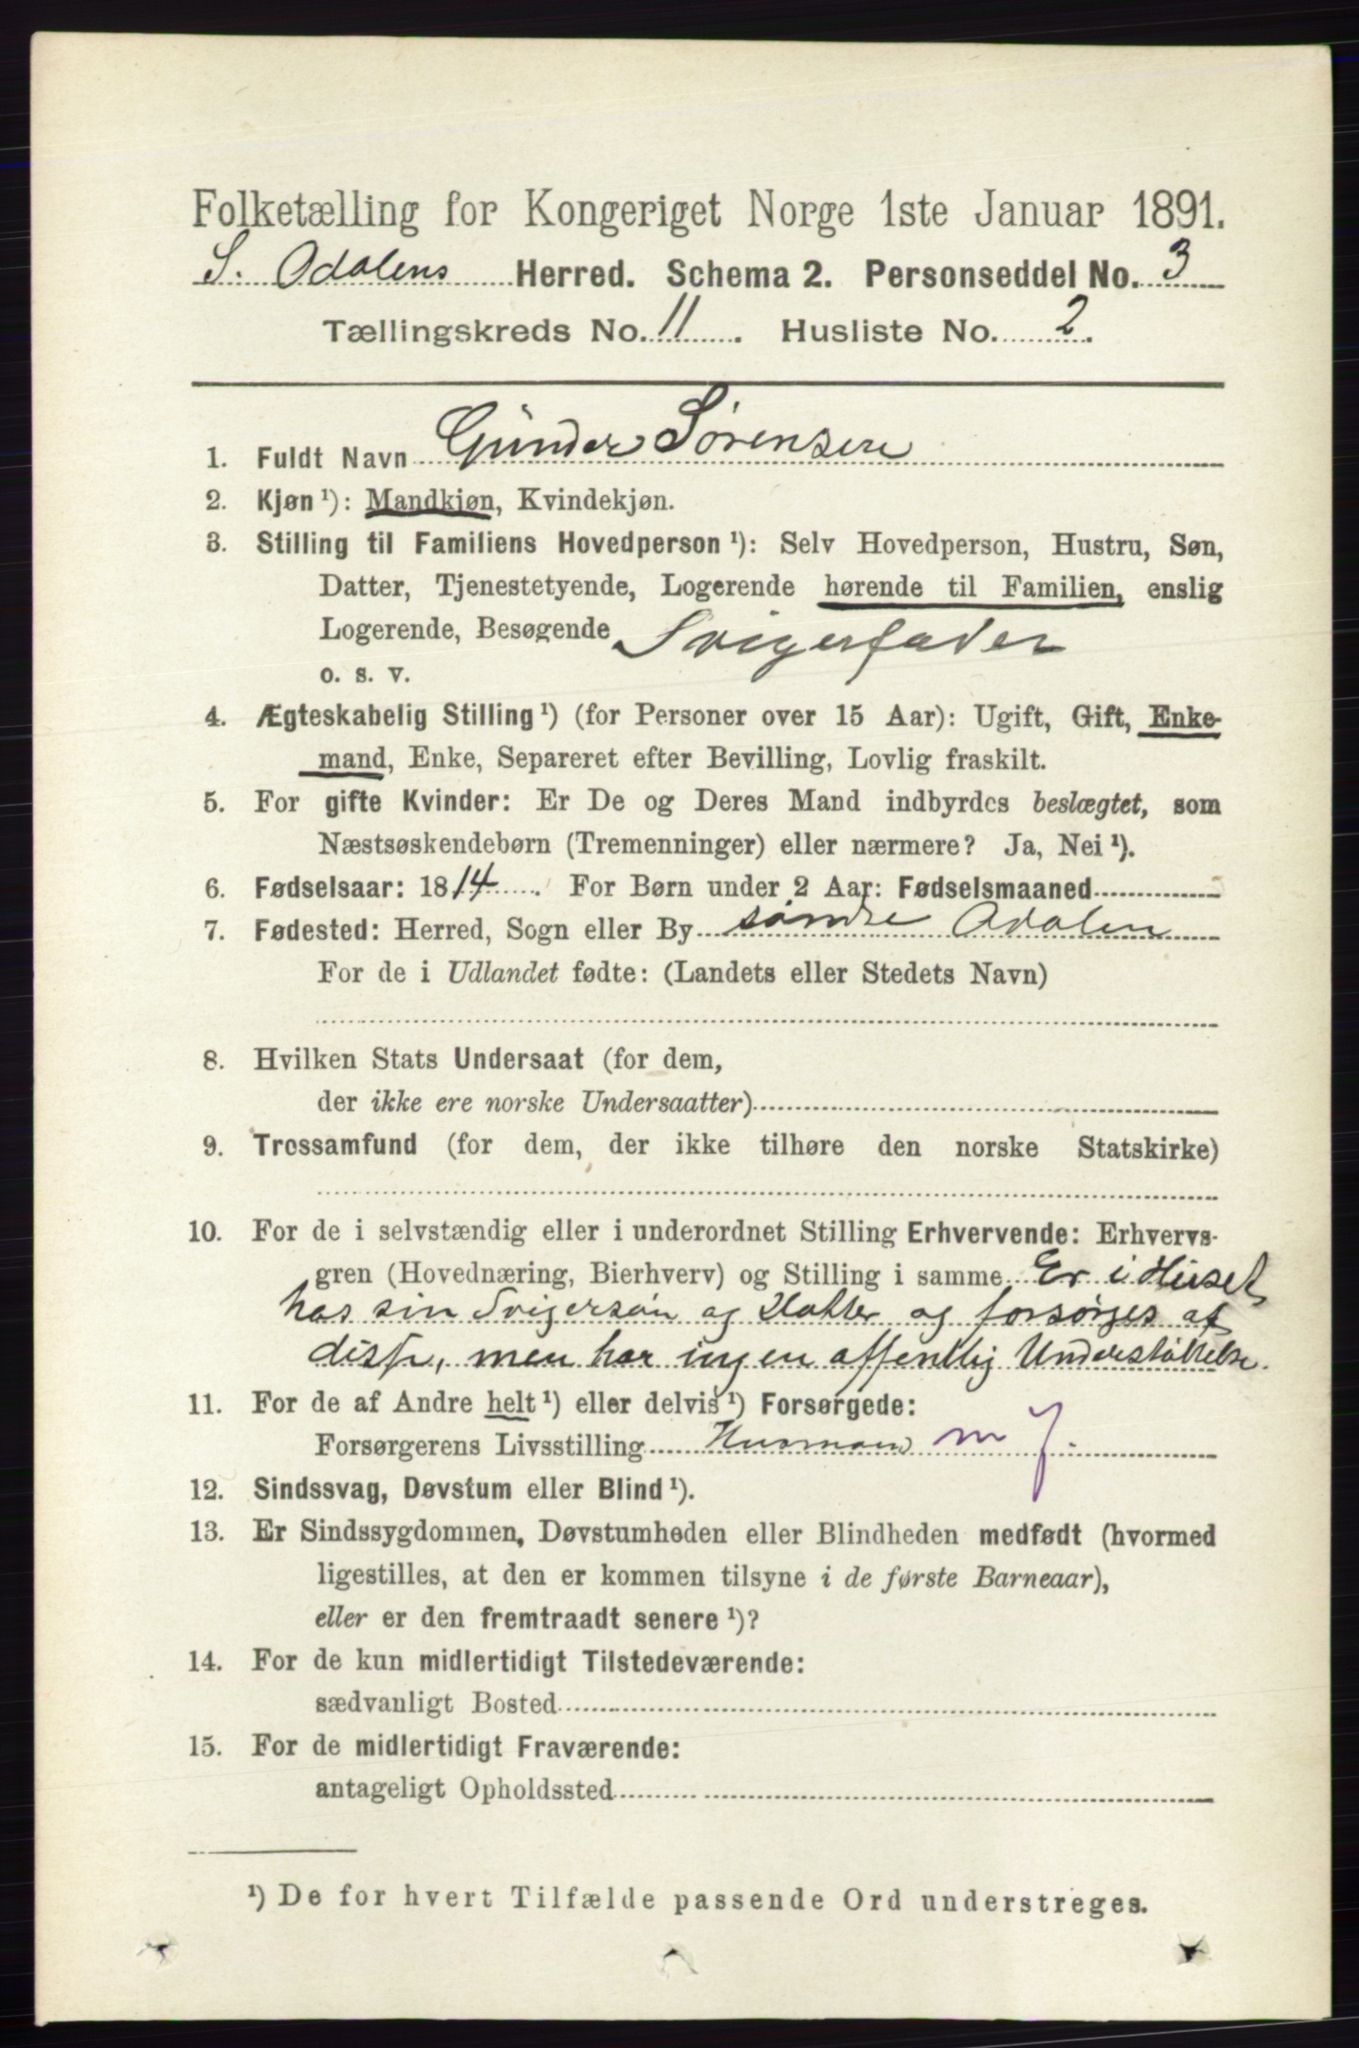 Folketælling for Kongeriget Norge 1ste Januar 1891.
S. Odalens Herred. Schema 2. Personseddel No. 3
Tællingskreds No. 11. Husliste No. 2.
1. Fuldt Navn Gunder Sørensen
2. Kjøn ¹): Mandkjøn, Kvindekjøn.
3. Stilling til Familiens Hovedperson ¹): Selv Hovedperson, Hustru, Søn,
Datter, Tjenestetyende, Logerende hørende til Familien, enslig
Logerende, Besøgende Svigerfader
o. s. v.
4. Ægteskabelig Stilling ¹) (for Personer over 15 Aar): Ugift, Gift, Enke-
mand, Enke, Separeret efter Bevilling, Lovlig fraskilt.
5. For gifte Kvinder: Er De og Deres Mand indbyrdes beslægtet, som
Næstsøskendebørn (Tremenninger) eller nærmere? Ja, Nei ¹).
6. Fødselsaar: 1814. For Børn under 2 Aar: Fødselsmaaned
7. Fødested: Herred, Sogn eller By søndre Odalen
For de i Udlandet fødte: (Landets eller Stedets Navn)
8. Hvilken Stats Undersaat (for dem,
der ikke ere norske Undersaatter)
9. Trossamfund (for dem, der ikke tilhøre den norske Statskirke)
10. For de i selvstændig eller i underordnet Stilling Erhvervende: Erhvervs-
gren (Hovednæring, Bierhverv) og Stilling i samme Er i Huset
hos sin Svigersøn og Datter og forsørges af
disse, men har ingen offentlig Understøttelse.
11. For de af Andre helt ¹) eller delvis ¹) Forsørgede:
Forsørgerens Livsstilling Husmand m J.
12. Sindssvag, Døvstum eller Blind ¹).
13. Er Sindssygdommen, Døvstumheden eller Blindheden medfødt (hvormed
ligestilles, at den er kommen tilsyne i de første Barneaar),
eller er den fremtraadt senere ¹)?
14. For de kun midlertidigt Tilstedeværende:
sædvanligt Bosted
15. For de midlertidigt Fraværende:
antageligt Opholdssted
¹) De for hvert Tilfælde passende Ord understreges.